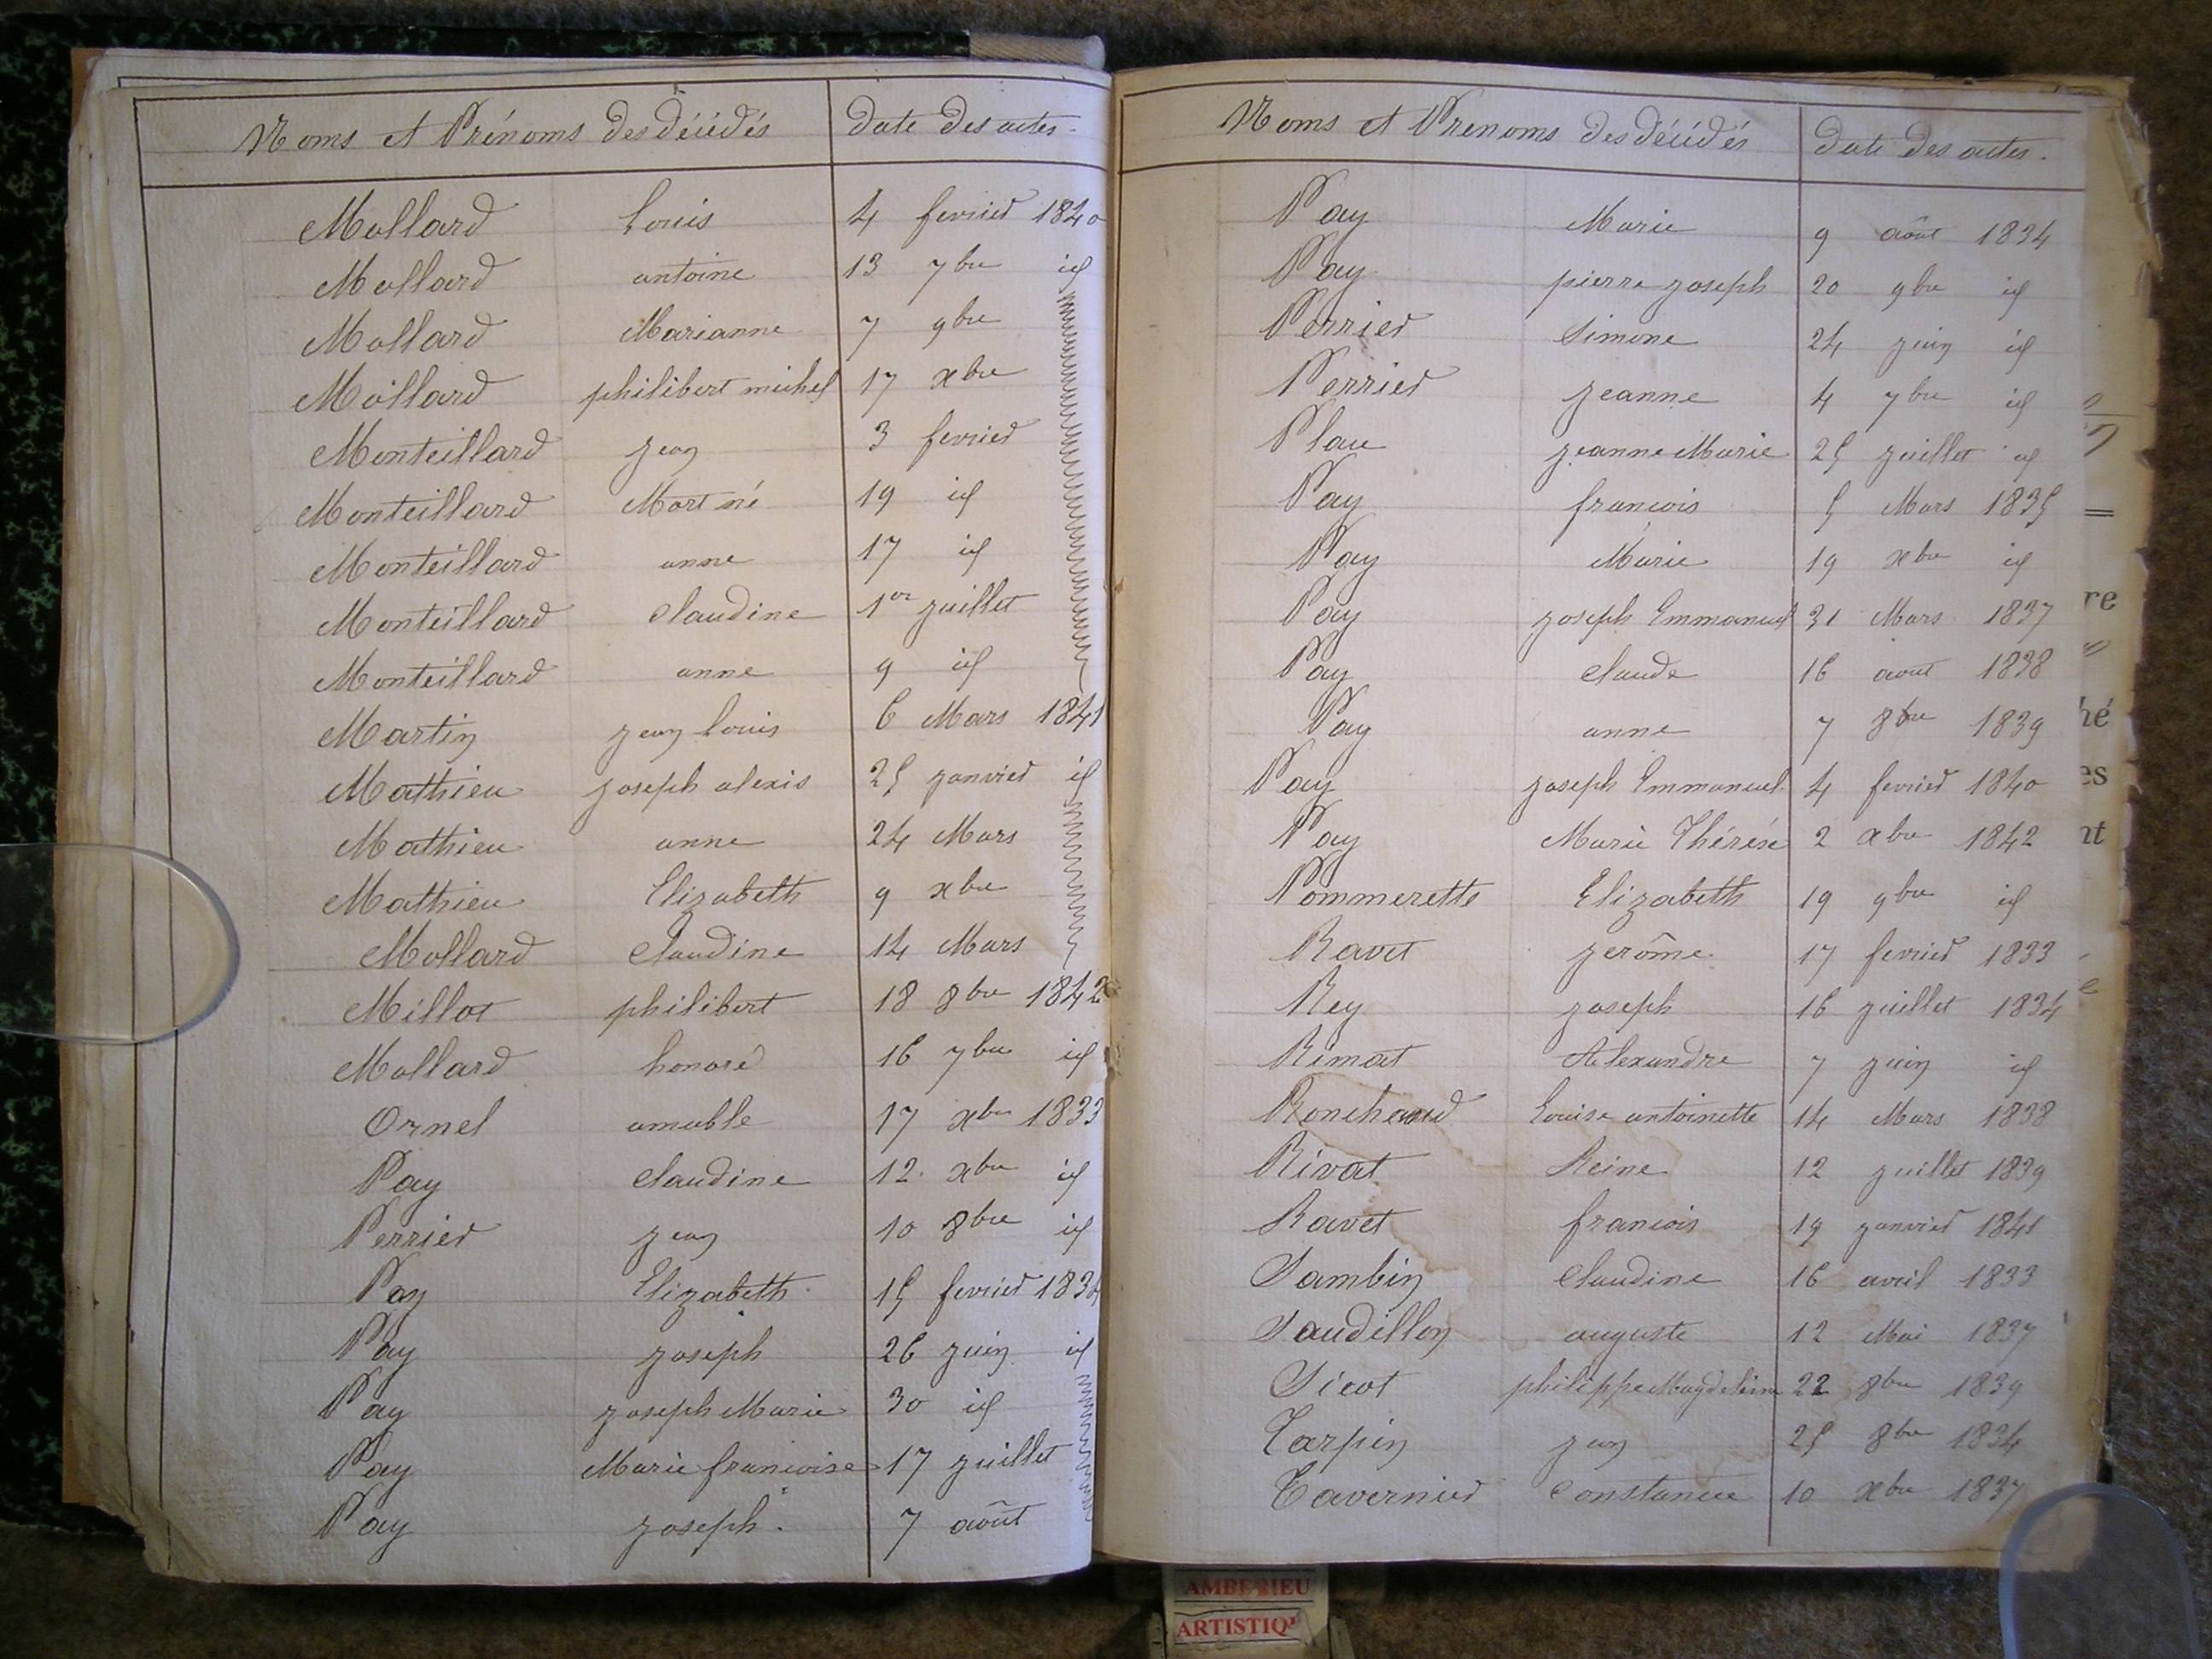 Noms et Prénoms des décédés Date des actes.
Mollard Louis 4 fevrier 1840
Mollard antoine 13 7bre id
Mollard Marianne 7 9bre
Mollard philibert michel 17 xbre
Monteillard jean 3 fevrier
Monteillard Mort né 19 id
Monteillard anne 17 id
Monteillard Claudine 1er juillet
Monteillard anne 9 id
Martin jean Louis 6 Mars 1841
Mathieu joseph alexis 25 janvier id
Mathieu anne 24 Mars
Mathieu Elizabeth 9 xbre
Mollard Claudine 14 Mars
Millot philibert 18 8bre 1842
Mollard honoré 16 7bre id
Ornel amable 17 xbre 1833
Pay Claudine 12 xbre id
Perrier jean 10 8bre id
Pay Elizabeth 15 fevrier 1834
Pay joseph 26 juin id
Pay joseph Marie 30 id
Pay Marie francoise 17 juillet
Pay joseph. 7 août
Noms et Prenoms des décédés Date des actes.
Pay Marie 9 août 1834
Pay pierre joseph 20 9bre id
Perrier Simone 24 juin id
Perrier jeanne 4 7bre id
Place jeanne Marie 25 juillet id
Pay francois 5 Mars 1835
Pay Marie 19 xbre id
Pay joseph Emmanuel 31 Mars 1837
Pay Claude 16 aout 1838
Pay anne 7 8bre 1839
Pay joseph Emmanuel 4 fevrier 1840
Pay Marie Thérése 2 xbre 1842
Pommerette Elizabeth 19 9bre id
Ravet jerôme 17 fevrier 1833
Rey joseph 16 juillet 1834
Rimat Alexandre 7 juin id
Ronchaud Louise antoinette 14 Mars 1838
Rivat Reine 12 juillet 1839
Ravet francois 19 janvier 1841
Sambin Claudine 16 avril 1833
Saudillon auguste 12 Mai 1837
Sicot philippe Magdeleine 22 8bre 1839
Tarpin jean 25 8bre 1834
Tavernier Constance 10 xbre 1837
re
hé
es
nt
AMBERIEU
ARTISTIQ